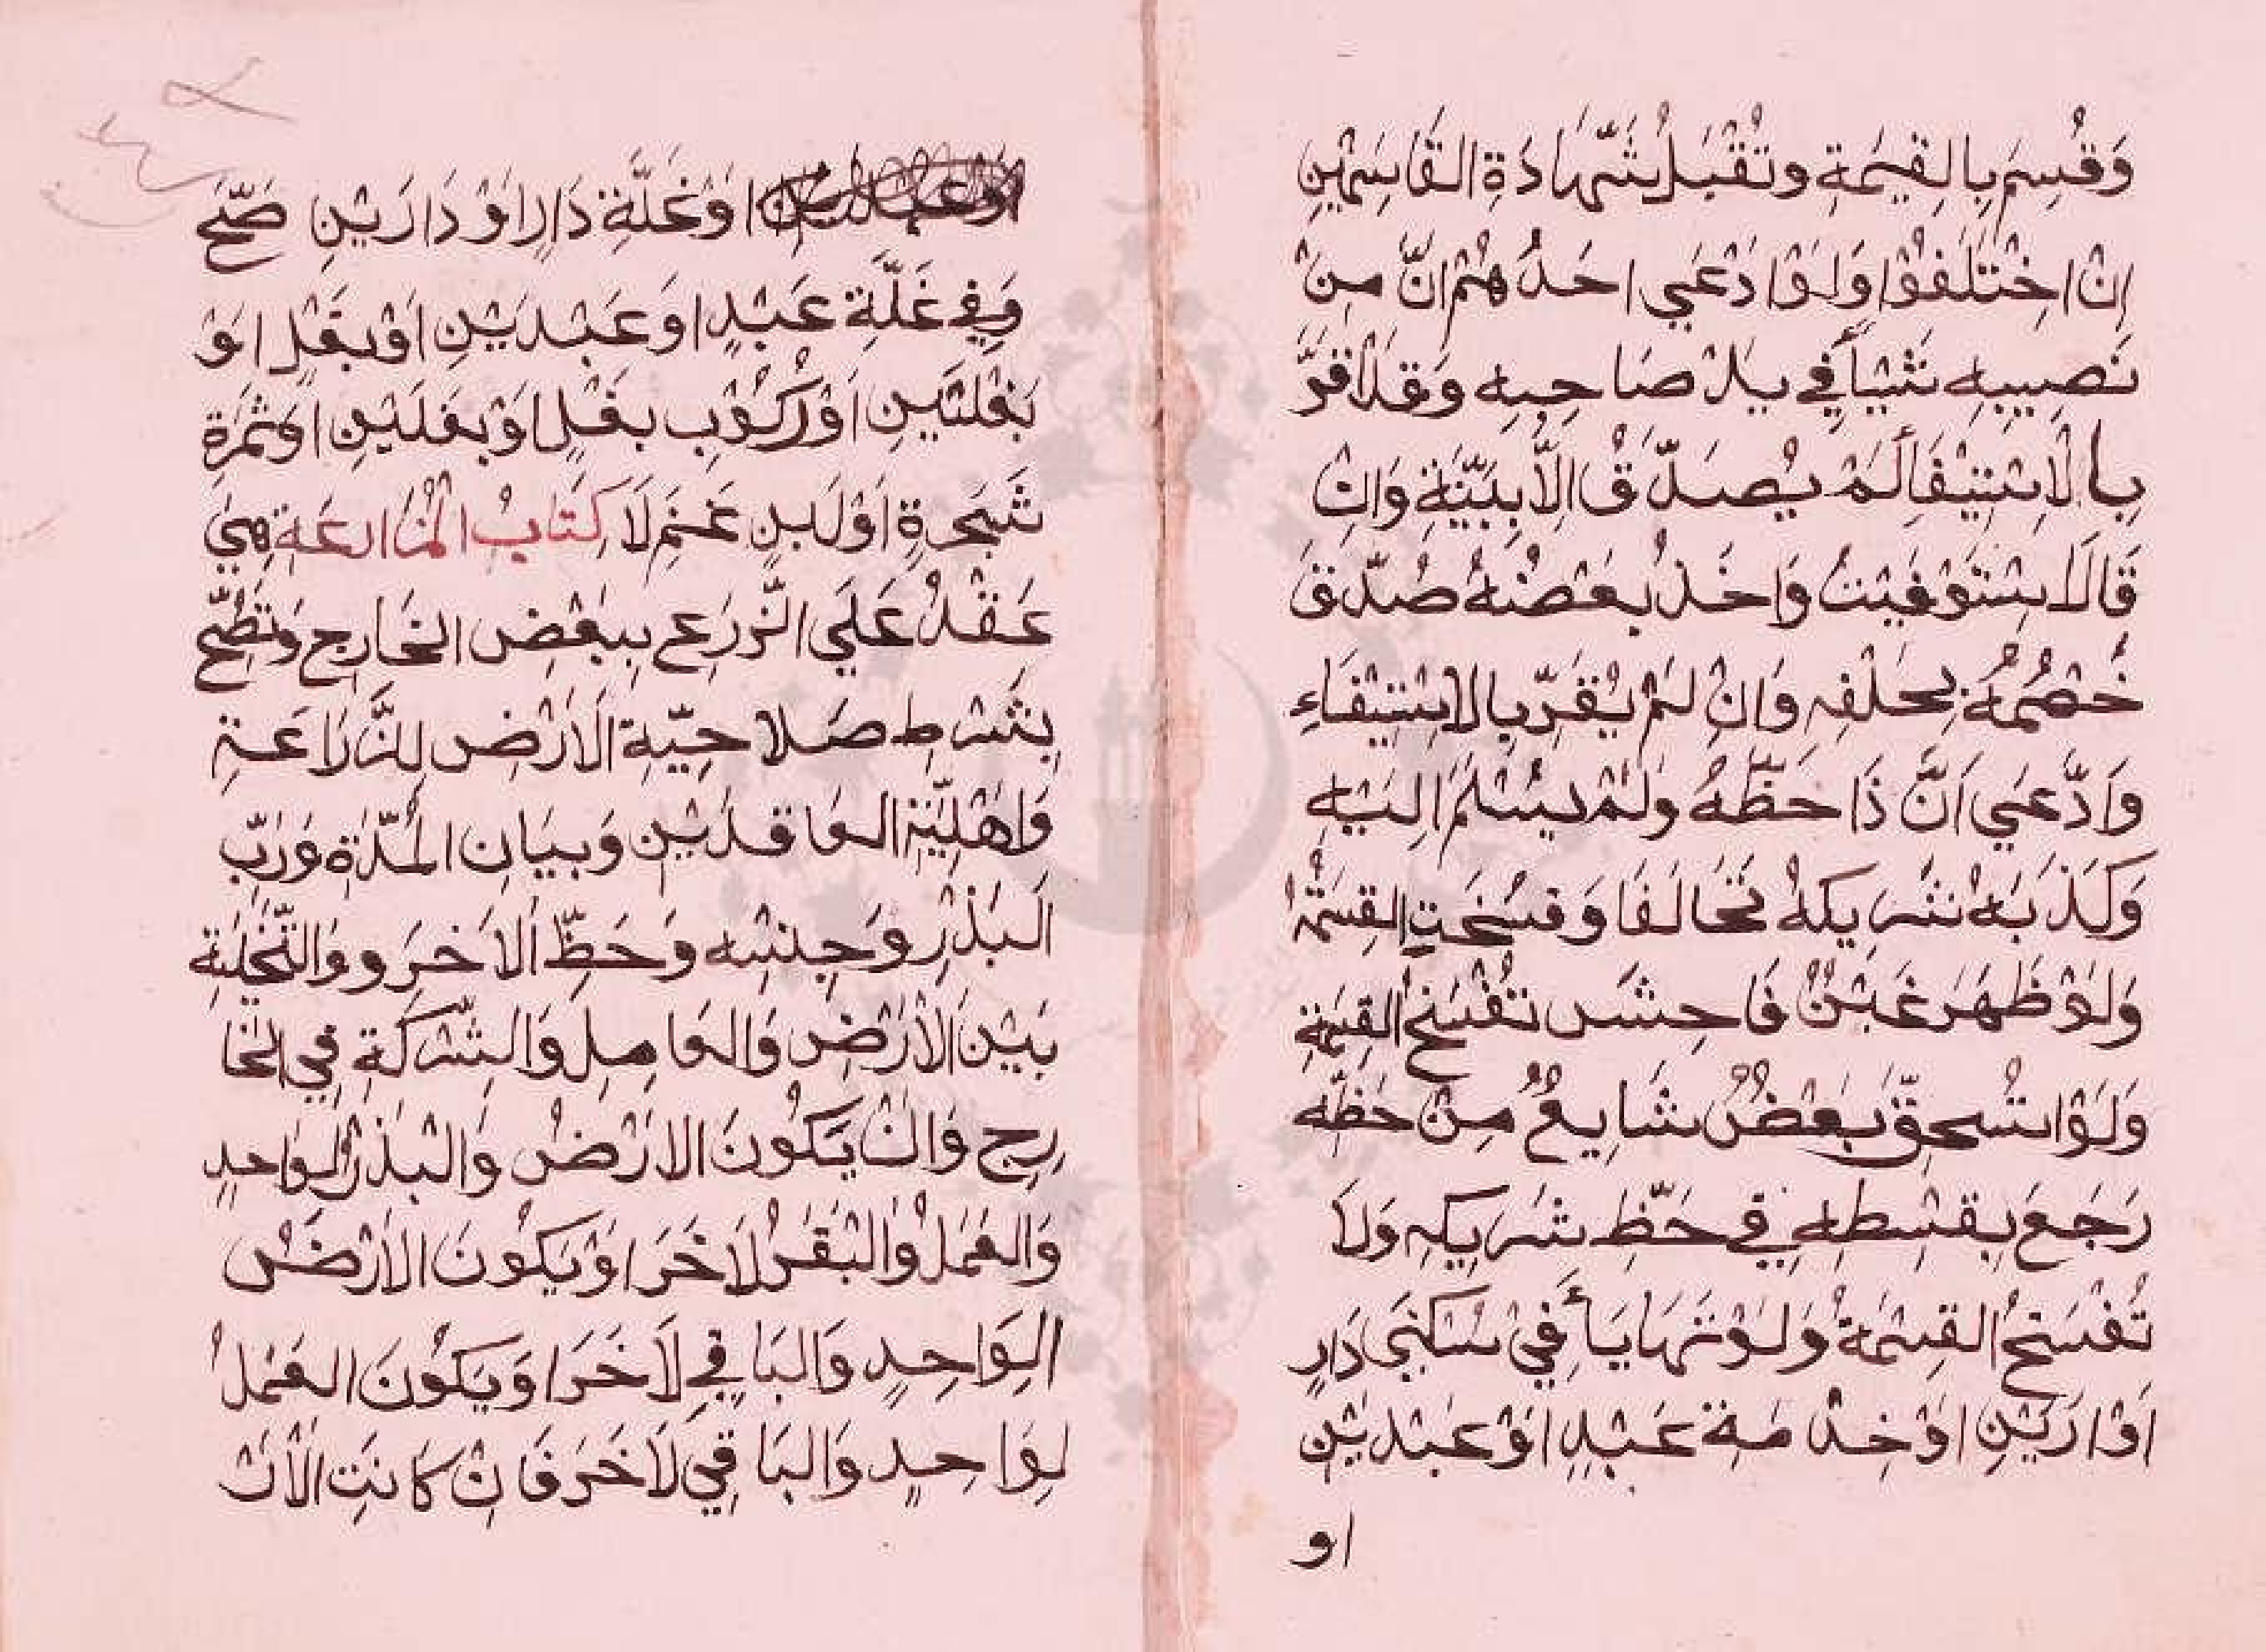 وَقُسِمَ بِالقِيمَةِ وتُقْبَلُ شَّهَادَةِ القَاسِمَيْنِ
اِنْ اخْتَلَفُوْا وَلَوْا دْعَي احَدُهُمْ انَّ مِنْ
نَصِيبِهِ شَيْئاً فِي يدْ صَاحِبِهِ وَقدْ اقَرَّ
بِا لْاسْتِيْفَأِلَمْ يُصَدَّ قْ اِلّاَ بِبَيِّنَةٍ وَانْ
قَالَ اسْتَوْفَيْتُ وَاخَذُ بَعْضُهُ صُدِّقَ
خَصْمُهُ بِحَلْفِهِ وَانْ لَمْ يُقَرّ بِالاسْتِيْفَاءِ
وَادَّعَي اَنَّ ذَا حَظُّهُ وَلَمْ يُسْلَمْ الَيْهِ
وَكَذَبَهُ شَرِيكهُ تَحَالَفَا وَفسُخَتِ القِسْمَةُ
وَلَوْ ظَهَرَ غَبْنٌ فَاحِشٌ تفْسَخُ القِسْمَةِ
وَلَوْا ستُحِقَّ بَعْضٌ شَايِعٌ مِنْ حَظِّه
رَجَعَ بِقسْطِهِ فِي حَظِّ شَرِيكِهِ وَلاَ
تُفْسَخُ القِسْمَةُ وَلَوْ تَهَايَأَ فِيْ سُكنَي دَارٍ
اَوْا رَيْنِ اوْ خِدْ مَةِ عَبْدٍ اوْ عَبْدَيْنِ
او
اوْغَلَّةِ دَارٍ اوْ دَا رَيْنِ صَحَّ
وَفِي غَلَّةِ عَبْدٍ اوَ عَبْدَيْنِ اوْ بغَلٍ اوْ
بَغْلَتَيْنِ اوْ رُكُوْبِ بغْلٍ اوْ بَغلَيْنِ اوْ ثمْرَةِ
شَجَرةٍ اوْ لَبنِ غَنَمٍ لَا كِتَابُ الْمُزَارعَةِ هِيَ
عَقْدُ عَلَي الزّرَعِ بِبَعْضِ الخَارِجِ وَتَصِحُّ
بِشَرْطِ صَلاحِيّةِ الَارْضِ لِلزَّرَاعَةِ
وَاهْلِيَّةِ العَاقدَيْنِ وَبيَانِ المُدّةِ وَرَبِّ
الَبَذْرِ وَجِنْسِه وَحَظِّ الاَخَرِ و وَالتَّخْلِيَةِ
بَيْنَ الْارْضِ وَالعَامِلِ وَالشّرْكَةِ فِي الخَا
رِجِ وَانْ يَكُونَ الارْضُ وَالْبَذْرُ لِوَاحدٍ
وَالعَمَلُ وَالْبَقَرُ لاَخَرَ اوْ يَكُونَ الاَرْضُ
الِوَاحِدٍ وَالبَاقِي لاَخَرَ اوَ يَكُونَ العَمَلُ
لِوَاحِدٍ وَالبَاقِي لَاخَرَ فَانْ كَانَتِ الْاَرْ